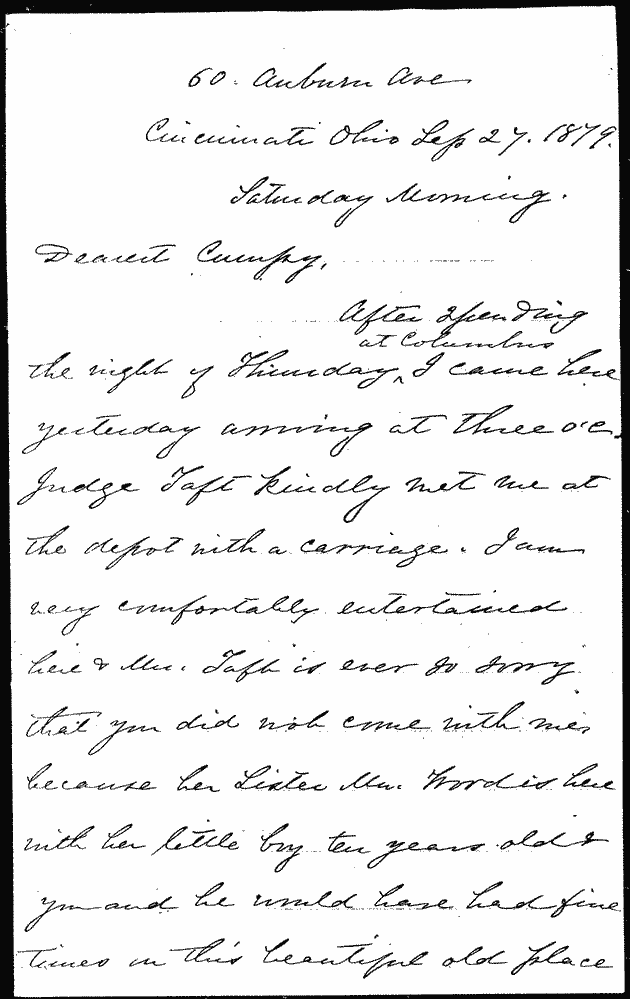 60. Auburn Ave
Cincinnati Ohio Sep 27. 1879.
Saturday Morning.
Dearest Cumpy,
After spending
at Columbus
the night of Thursday, I came here
yesterday arriving at three o'c.
Judge Taft kindly met me at
the depot with a carriage. I am
very comfortably entertained
here & Mrs. Taft is ever so sorry
that you did not come with me,
because her Sister Mrs. Wood is here
with her little boy ten years old &
you and he would have had fine
times in this beautiful old place